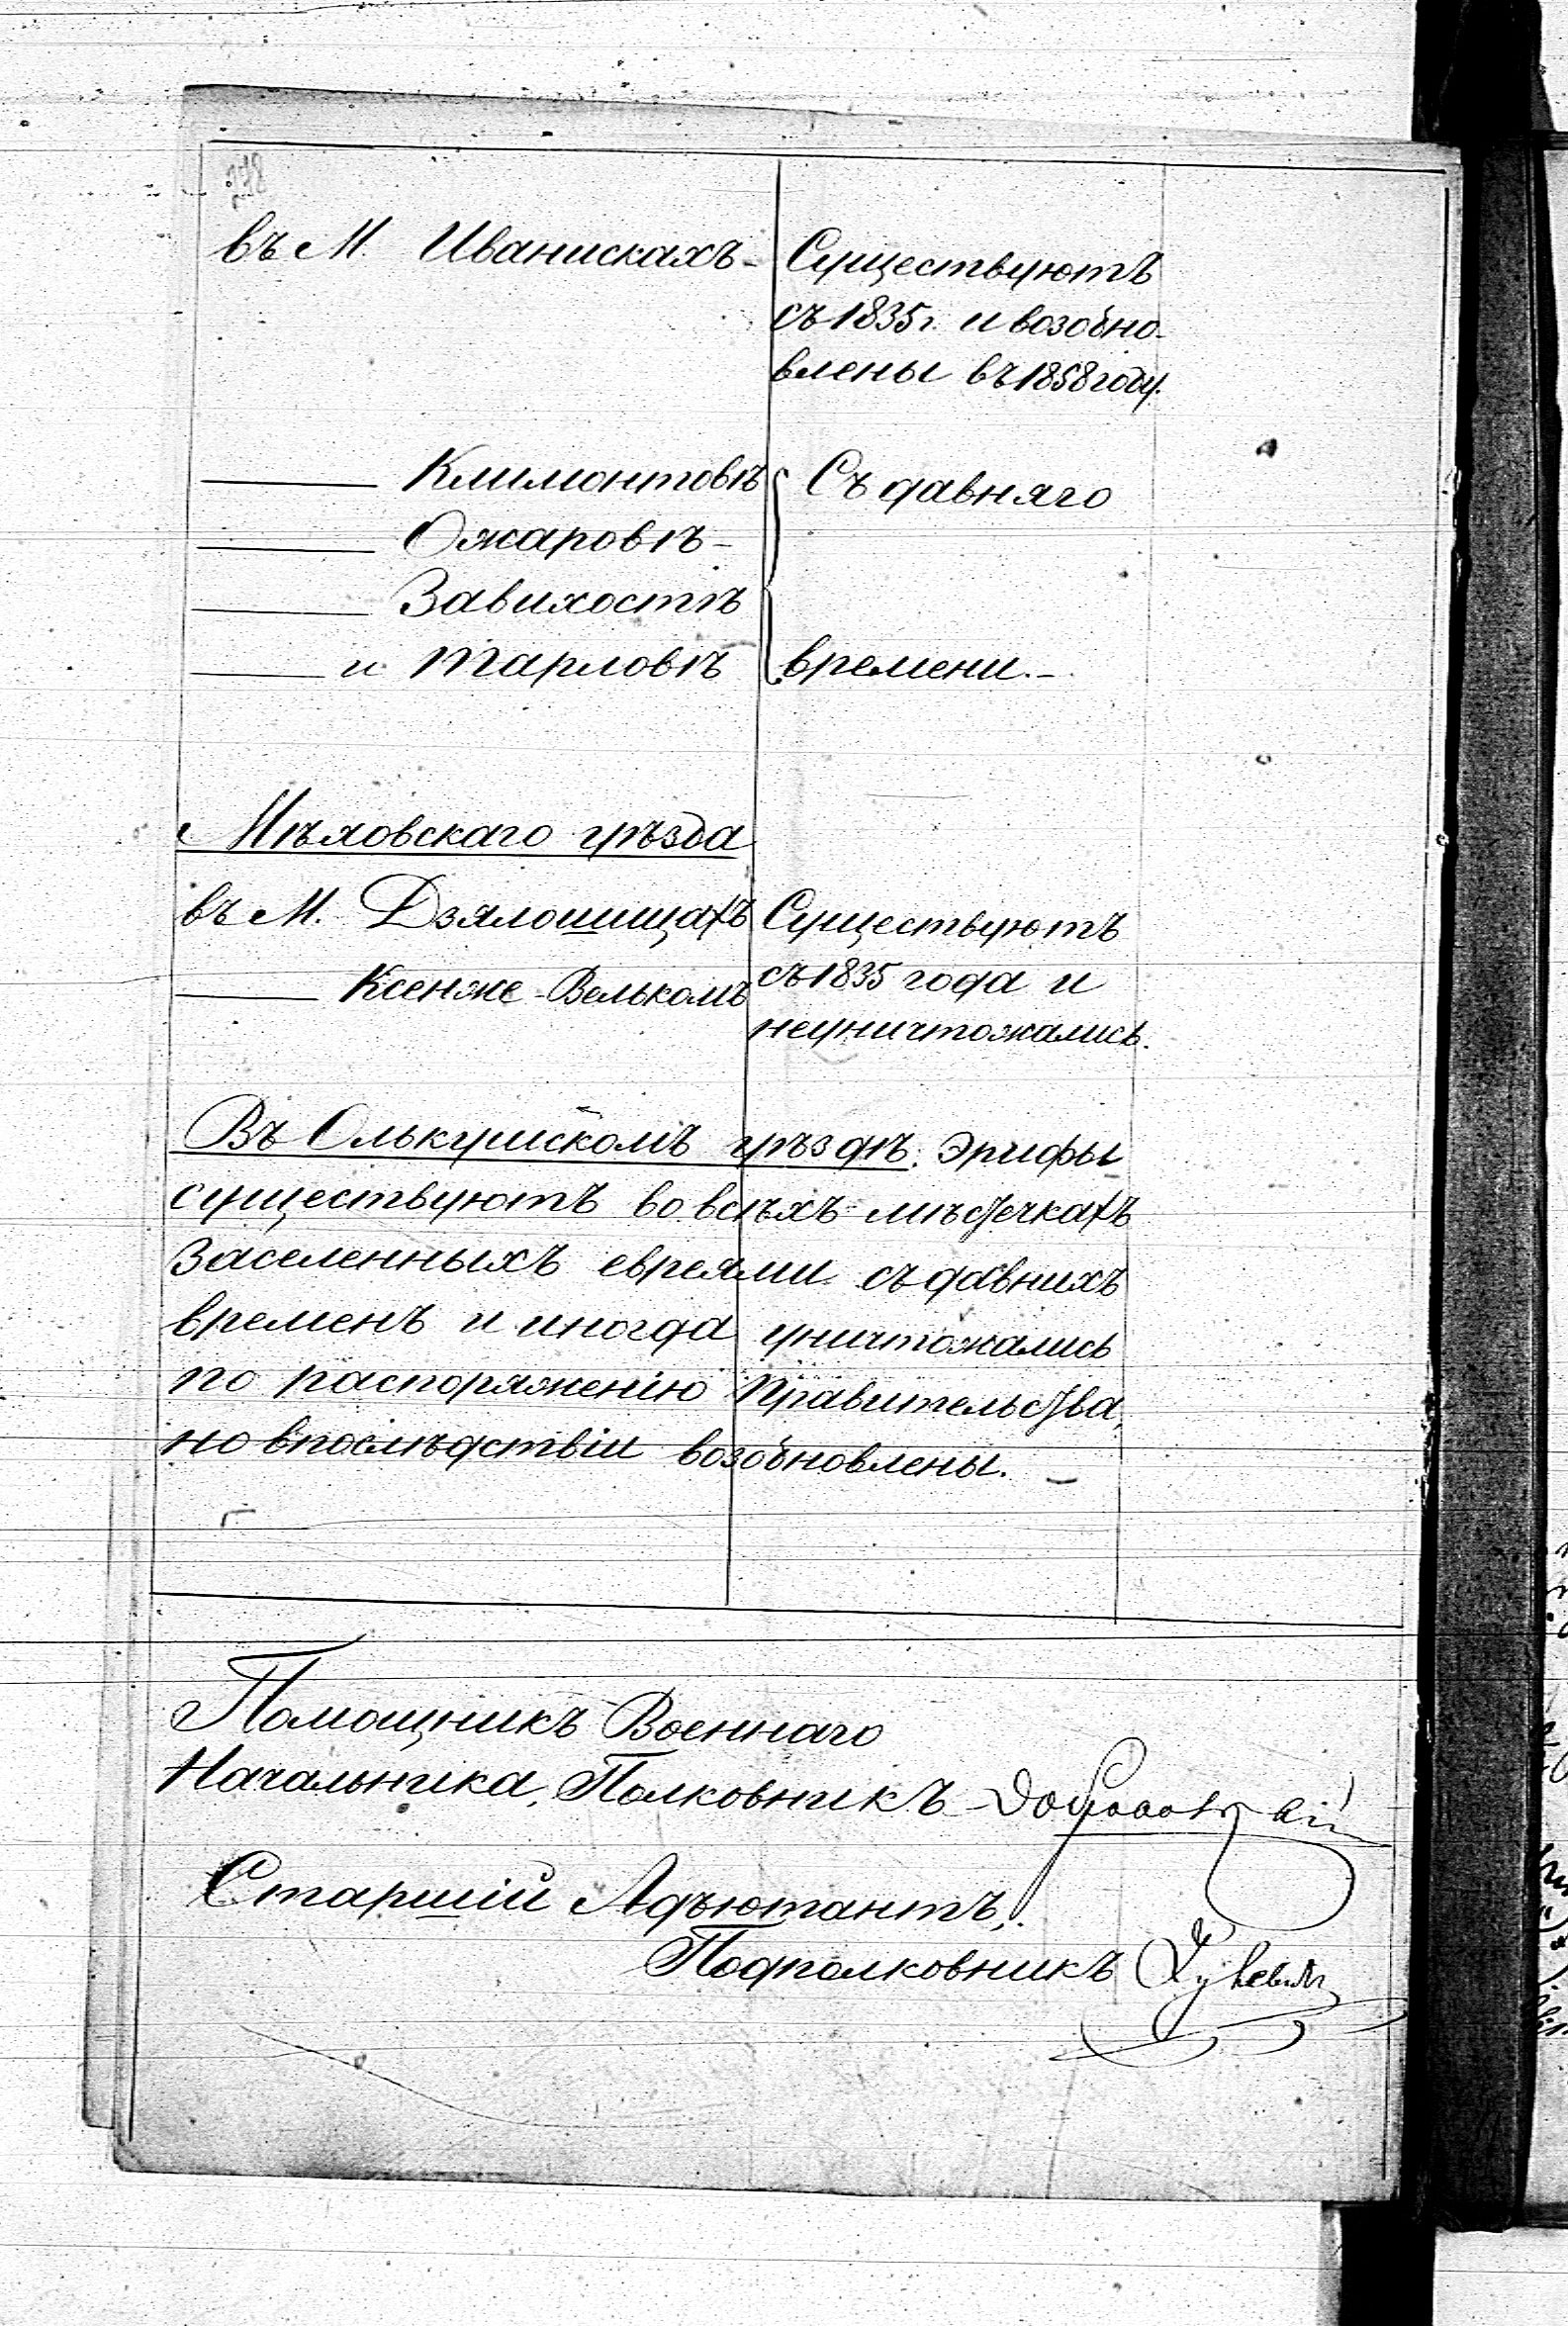 въ М. Иванискахъ - Существуютъ
съ 1835 г. и возобно-
влены въ 1858 году.
Климонтовѣ Съ давняго
Ожаровѣ -
Завихостѣ
и Тарловѣ времени. -
Мѣховскаго уѣзда
въ М. Дзялошицахъ Существуютъ
Ксенже-Велькомъ съ 1835 года и
неуничтожались.
Въ Олькушскомъ уѣздѣ. Эрифы
существуютъ во всѣхъ мѣстечкахъ
заселенныхъ евреями съ давнихъ
временъ и иногда уничтожались
по распоряженію Правительства,
но впослѣдствіи возобновлены. -
Помощникъ Военнаго
Начальника, Полковникъ
Старшій Адъютантъ,
Подполковникъ